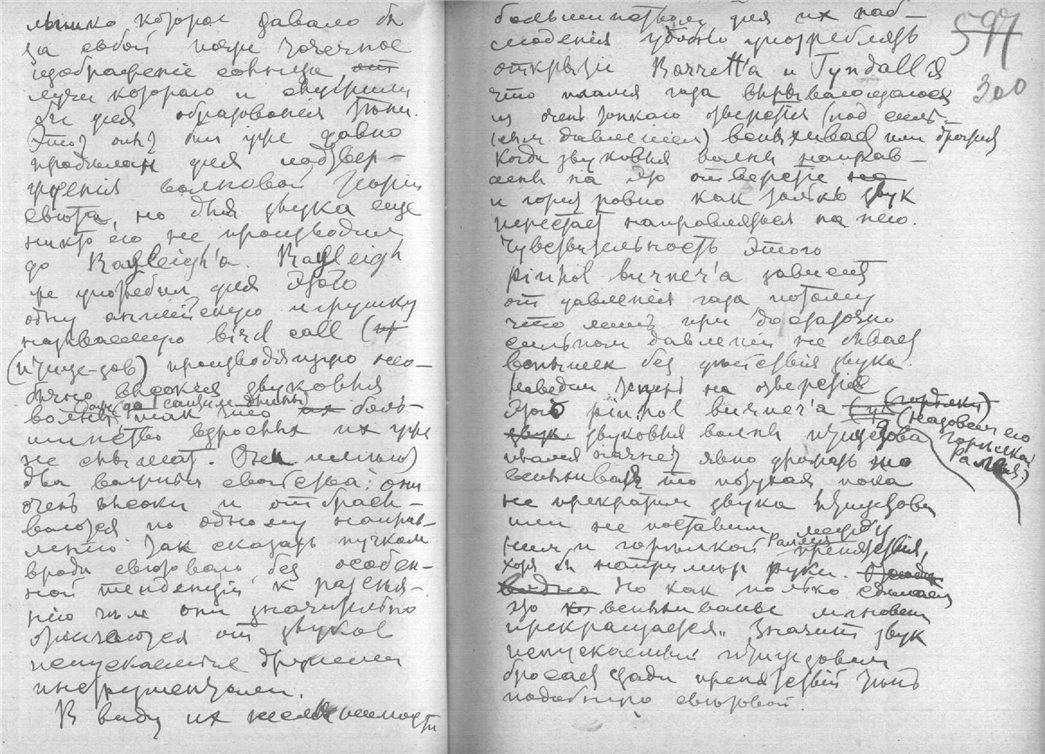 лышко которое давало бы
за собой почти точечное
изображение солнца,
лучи которого и служили
бы для образования тени.
Этот опыт был уже давно
проделан для подтвер-
ждения волновой теории
света, но для звука еще
никто его не производил
до Rayleigh'a. Rayleigh
же употребил для этого
одну английскую игрушку
называемую bird call (
(птице-зов) производящую нео-
бычно высокия звуковыя
волны так что их боль-
шинство взрослых их уже
не слышат. Они имеют
два важныя свойства: они
очень высоки и отбрасы-
ваются по одному направ-
лению так сказать пучком
вроде светового без особен-
ной тенденции к рассея-
нию чем они значительно
отличаются от звуков
испускаемые другими
инструментами.
В виду их неслышимости
597
300
большинством для их наб-
людения удобно употреблять
открытие Barrett'a и Tyndall'я
что пламя газа вырывающегося
из очень тонкого отверстия (под силь-
ным давлением) вспыхивая или
когда звуковыя волны направ-
лены на это отверстие
и горя ровно как только звук
перестает направляться на него.
Чувствительность этого
pinhol burner'a зависит
от давления газа потому
что лишь при достаточно
сильном давлении не бывает
вспышек без действия звука.
Наведем тень на отверстие
этого pinhol burner'a (горелки)
(назовем его
горелка
Рэлея)
звуковыя волны птицезова
пламя начнет явно
вспыхивая то потухая пока
не прекратим звука птицезова
или не поставим между
ним и горелкой Рэлея препятствия,
хотя бы например руки.
видно Но как только сделаем
это вспыхивание мгновенно
прекращается. Значит звук
испускаемый птицезовом
бросает сзади препятствий тень
подобную световой.